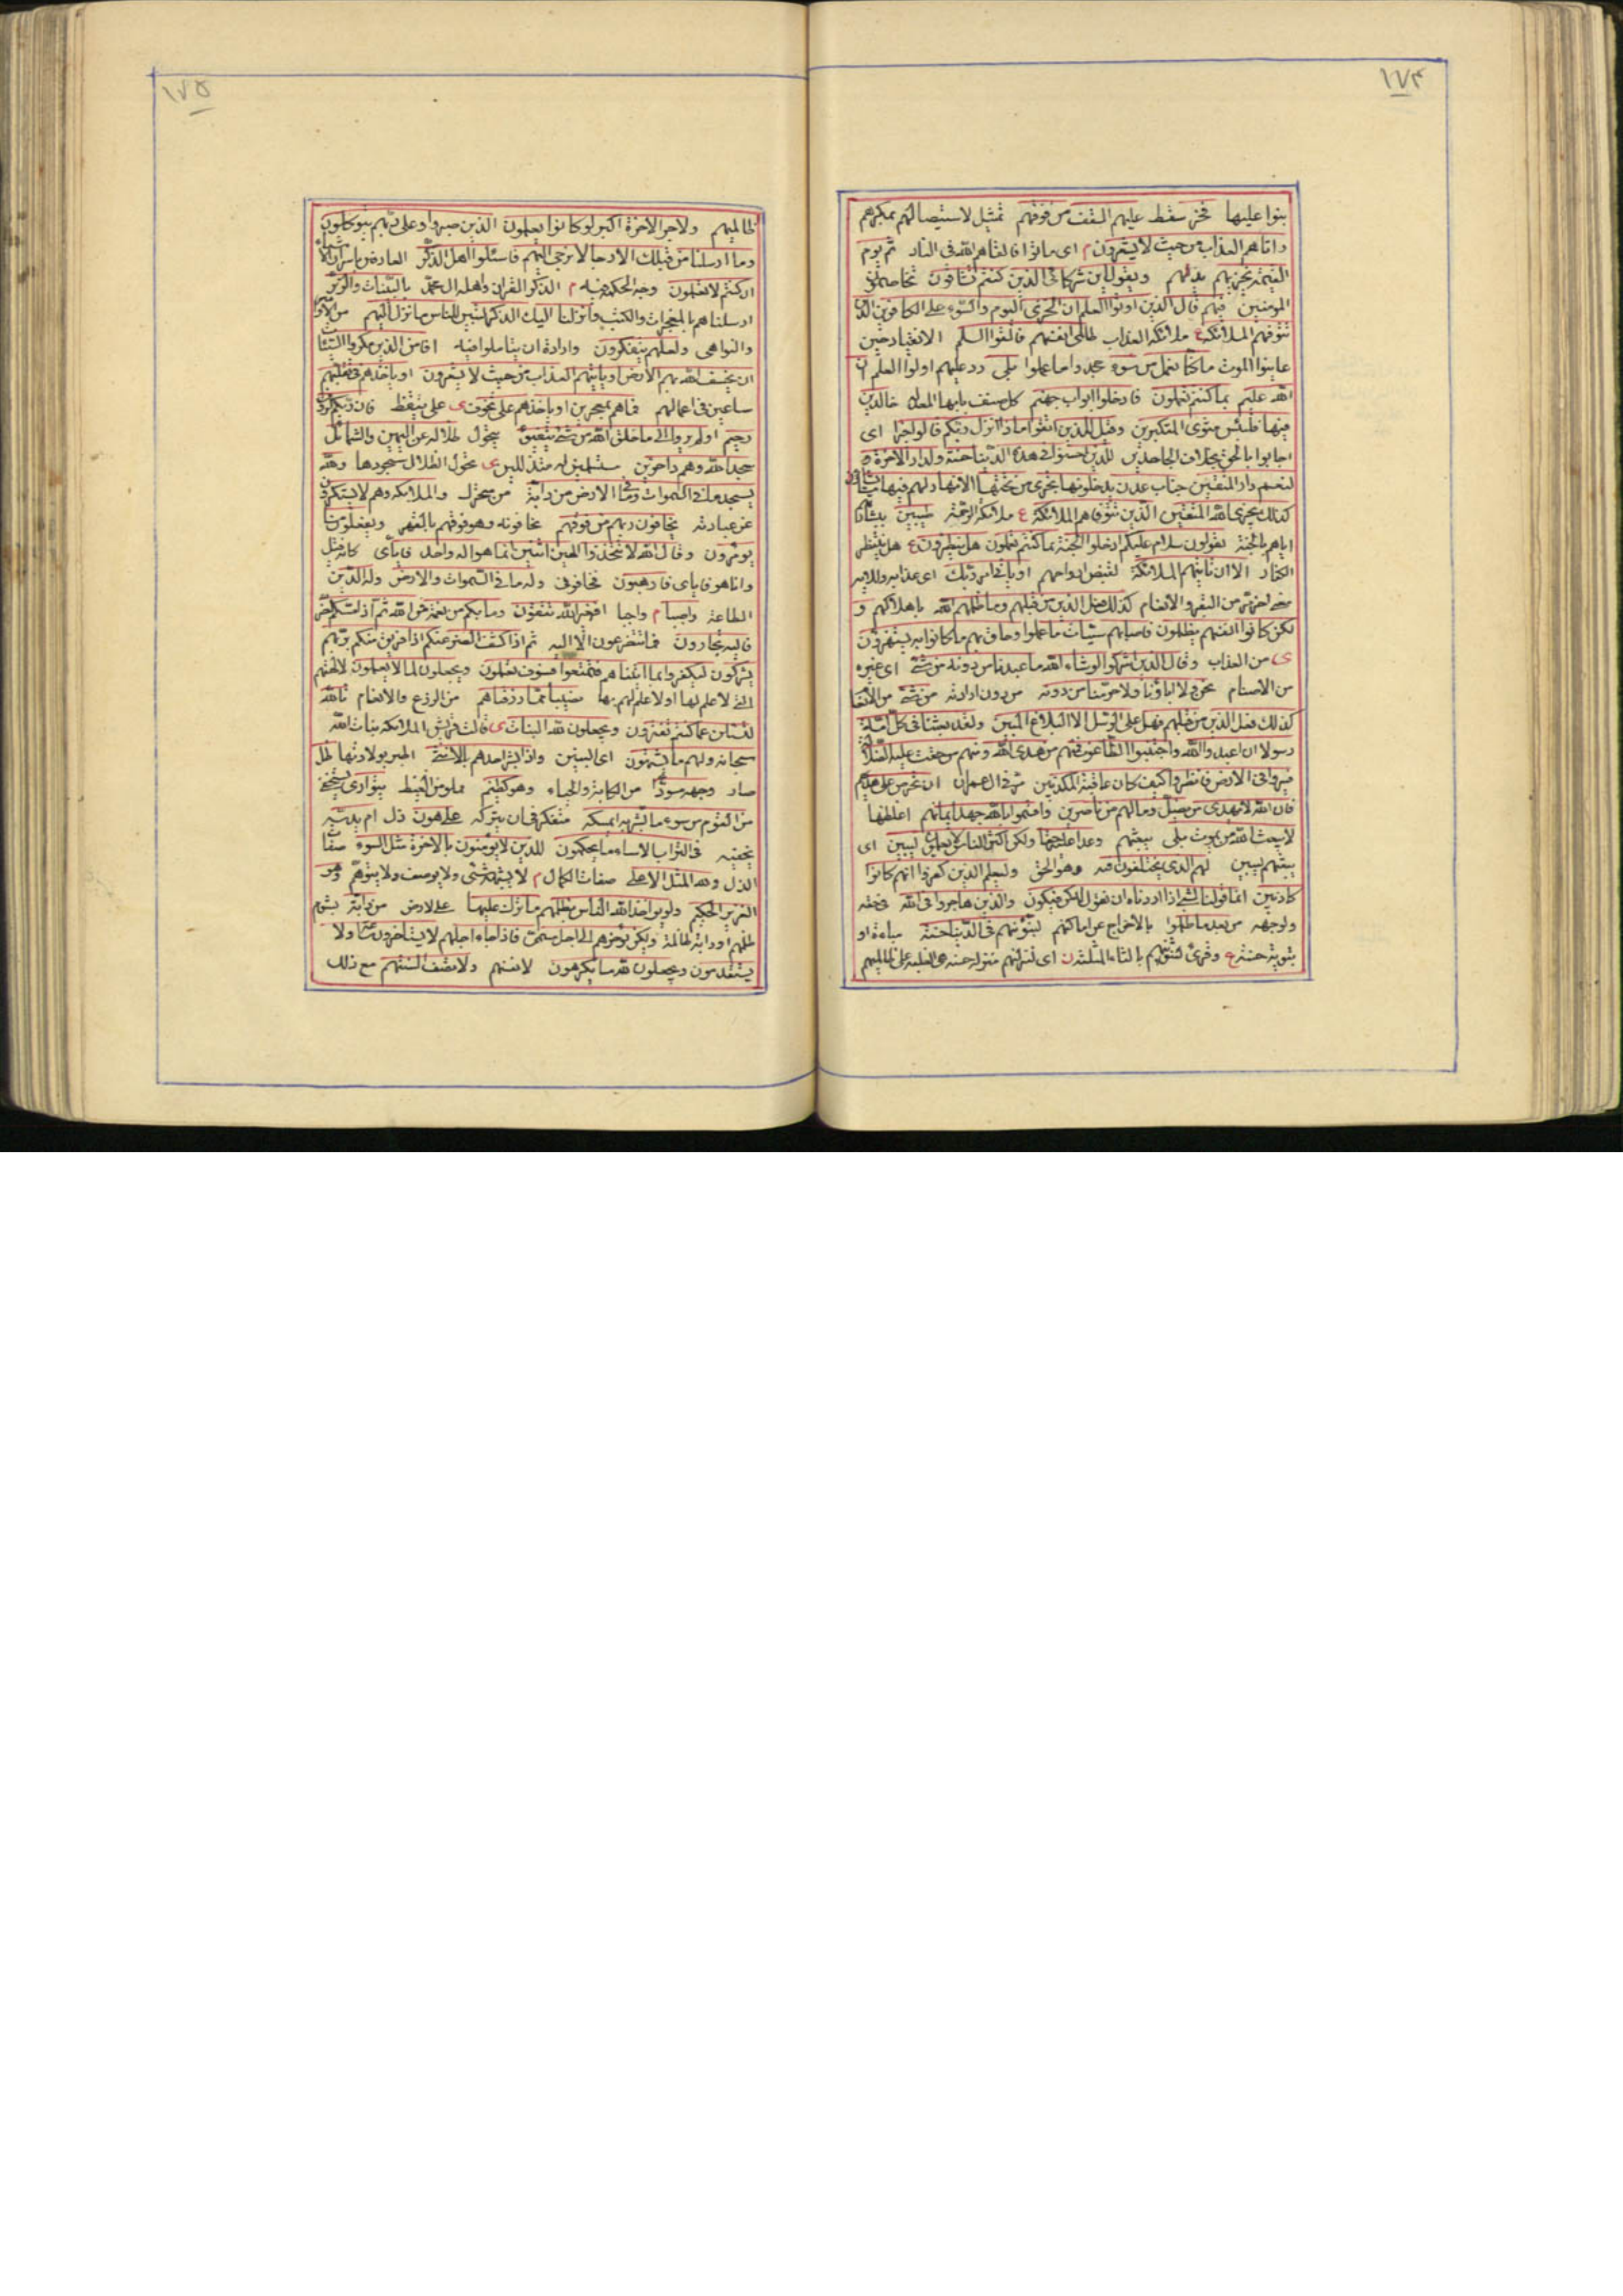 ١٧٤
بنوا عليها فخر سقط عليهم السقف من فوقهم تمثيل لاستيصالهم بمكرهم
واتاهم العذاب من حيث لا يشعرون م اى ماتوا فالقاهم الله فى النار ثم يوم
القيمة يخزيهم يذلهم ويقول اين شركائى الذين كنتم تشاقون تخاصمون
المومنين فيهم قال الذين اوتوا العلم ان الخزى اليوم والسوء على الكافرين الذين
تتوفهم الملائكة ع ملائكة العذاب ظالمى انفسهم فالقوا السلم الانقياد حين
عاينوا الموت ما كنا نعمل من سوء جحدوا ما عملوا بلى رد عليهم اولوا العلم ان
الله عليم بما كنتم تعملون فادخلوا ابواب جهنم كل صنف بابها المعد له خالدين
فيها فلبئس مثوى المتكبرين وقيل للذين اتقوا ماذا انزل ربكم قالوا خيرا اى
اجابوا بالحق بخلاف الجاحدين للذين احسنوا فى هذه الدنيا حسنة ولدار الاخرة خير
لنعم دار المتقين جنات عدن يدخلونها تجرى من تحتها الانهار لهم فيها ما يشاؤن
كذلك يجزى الله المتقين الذين تتوفاهم الملائكة ع ملائكة الرحمة طيبين ببشارتها
اياهم بالجنة يقولون سلام عليكم ادخلوا الجنة بما كنتم تعملون هل ينظرون ع هل ينتظر
الكفار الا ان تاتيهم الملائكة لقبض ارواحهم او ياتى امر ربك اى عذابه
كذلك فعل الذين من قبلهم وما ظلمهم الله باهلاكهم و
لكن كانوا انفسهم يظلمون فاصابهم سيئات ما عملوا وحاق بهم ما كانوا به يستهزؤن
ى من العذاب وقال الذين اشركوا لو شاء الله ما عبدنا من دونه من شئ اى غيره
من الاصنام نحن ولا اباؤنا ولا حرمنا من دونه من دون ارادته من شئ من الانعام
كذلك فعل الذين من قبلهم فهل على الرسل الا البلاغ المبين ولقد بعثنا فى كل امة
رسولا ان اعبدوا الله واجتنبوا الطاغوت فمنهم من هدى الله ومنهم من حقت عليه الضلالة
فسيروا فى الارض فانظروا كيف كان عاقبة المكذبين ان تحرص على هديهم
فان الله لا يهدى من يضل وما لهم من ناصرين واقسموا بالله جهد ايمانهم اغلظها
لا يبعث الله من يموت بلى يبعثهم وعدا عليه حقا ولكن اكثر الناس لا يعلمون ليبين اى
يبعثهم ليبين لهم الذى يختلفون فيه وهو الحق وليعلم الذين كفروا انهم كانوا
كاذبين انما قولنا لشئ اذا اردناه ان نقول له كن فيكون والذين هاجروا فى الله فى حقه
ولوجهه من بعد ما ظلموا بالاخراج عن اماكنهم لنبوئنهم فى الدنيا حسنة مباءة او
تبوية حسنة ع وقرئ لنثوينهم بالثاء المثلثة اى لننزلنهم منزلة حسنة هى الغلبة على ظالميهم
١٧٥
ظالميهم ولاجر الاخرة اكبر لو كانوا يعلمون الذين صبروا وعلى ربهم يتوكلون
وما ارسلنا من قبلك الا رجالا نوحى اليهم فاسئلوا اهل الذكر العارفين
ان كنتم لا تعلمون وجه الحكمة فيه م الذكر القران واهله ال محمد بالبينات والزبر
ارسلناهم بالمعجزات والكتب وانزلنا اليك الذكر لتبين للناس ما نزل اليهم من الاوامر
والنواهى ولعلهم يتفكرون وارادة ان يتاملوا فيه افامن الذين مكروا السيئات
ان يخسف الله بهم الارض او ياتيهم العذاب من حيث لا يشعرون او ياخذهم فى تقلبهم
ساعين فى اعمالهم فما هم بمعجزين او ياخذهم على تخوف ى على تيقظ فان ربكم لرؤف
رحيم اولم يروا الى ما خلق الله من شئ يتفيؤ يتحول ظلاله عن اليمين والشمائل
سجدا لله وهم داخرين مستسلمين له منقادين ى تحول الظلال سجودها ولله
يسجد ما فى السموات وما فى الارض من دابة من متحرك والملائكة وهم لا يستكبرون
عن عبادته يخافون ربهم من فوقهم يخافونه وهو فوقهم بالقهر ويفعلون ما
يؤمرون وقال الله لا تتخذوا الهين اثنين انما هو اله واحد فاياى كانه قيل
وانا هو فاياى فارهبون فخافونى وله ما فى السموات والارض وله الدين
الطاعة واصبا م واجبا افغير الله تتقون وما بكم من نعمة فمن الله ثم اذا مسكم الضر
فاليه تجارون فما تتضرعون الا اليه ثم اذا كشف الضر عنكم اذا فريق منكم بربهم
يشركون ليكفروا بما اتيناهم فتمتعوا فسوف تعلمون ويجعلون لما لا يعلمون لالهتهم
التى لا علم لها او لا علم لهم بها نصيبا مما رزقناهم من الزرع والانعام تالله
لتسئلن عما كنتم تفترون ويجعلون لله البنات ى قالت قريش الملائكة بنات الله
سبحانه ولهم ما يشتهون اى البنين واذا بشر احدهم بالانثى اخبر بولادتها ظل
صار وجهه مسودا من الكابة والحياء وهو كظيم مملو من الغيظ يتوارى يستخفى
من القوم من سوء ما بشر به ايمسكه متفكرا فى ان يتركه على هون ذل ام يدسه
يخفيه فى التراب الا ساء ما يحكمون للذين لا يؤمنون بالاخرة مثل السوء صفات
الذل ولله المثل الاعلى صفات الكمال م لا يشبهه شئ ولا يوصف ولا يتوهم وهو
العزيز الحكيم ولو يؤاخذ الله الناس بظلمهم ما ترك عليها على الارض من دابة بشوم
ظلمهم او دابة ظالمة ولكن يؤخرهم الى اجل مسمى فاذا جاء اجلهم لا يستاخرون ساعة ولا
يستقدمون ويجعلون لله ما يكرهون لانفسهم وتصف السنتهم مع ذلك